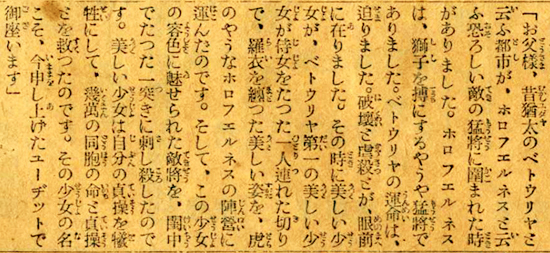 「お父様、昔猶太のベトウリヤと
云ふ都市が、ホロフエルネスと云
ふ恐ろしい敵の猛將に圍まれた時
がありました。ホロフエルネス
は、獅子を搏にするやうな猛將で
ありました。ベトウリヤの運命は、
迫りました。破壞と虐殺とが、眼前
に在りました。その時に美しい少
女が、ベトウリヤ第一の美しい少
女が、侍女をたつた一人連れた切り
で、羅衣を纏つた美しい姿を、虎
のやうなホロフエルネスの陣營に
運んだのです。そして、この少女
の容色に魅せられた敵將を、閨中
でたつた一突きに刺し殺したので
す。美しい少女は自分の貞操を犧
牲にして、幾萬の同胞の命と貞操
とを救つたのです。その少女の名
こそ、今申し上げたユーヂツトで
御座います」